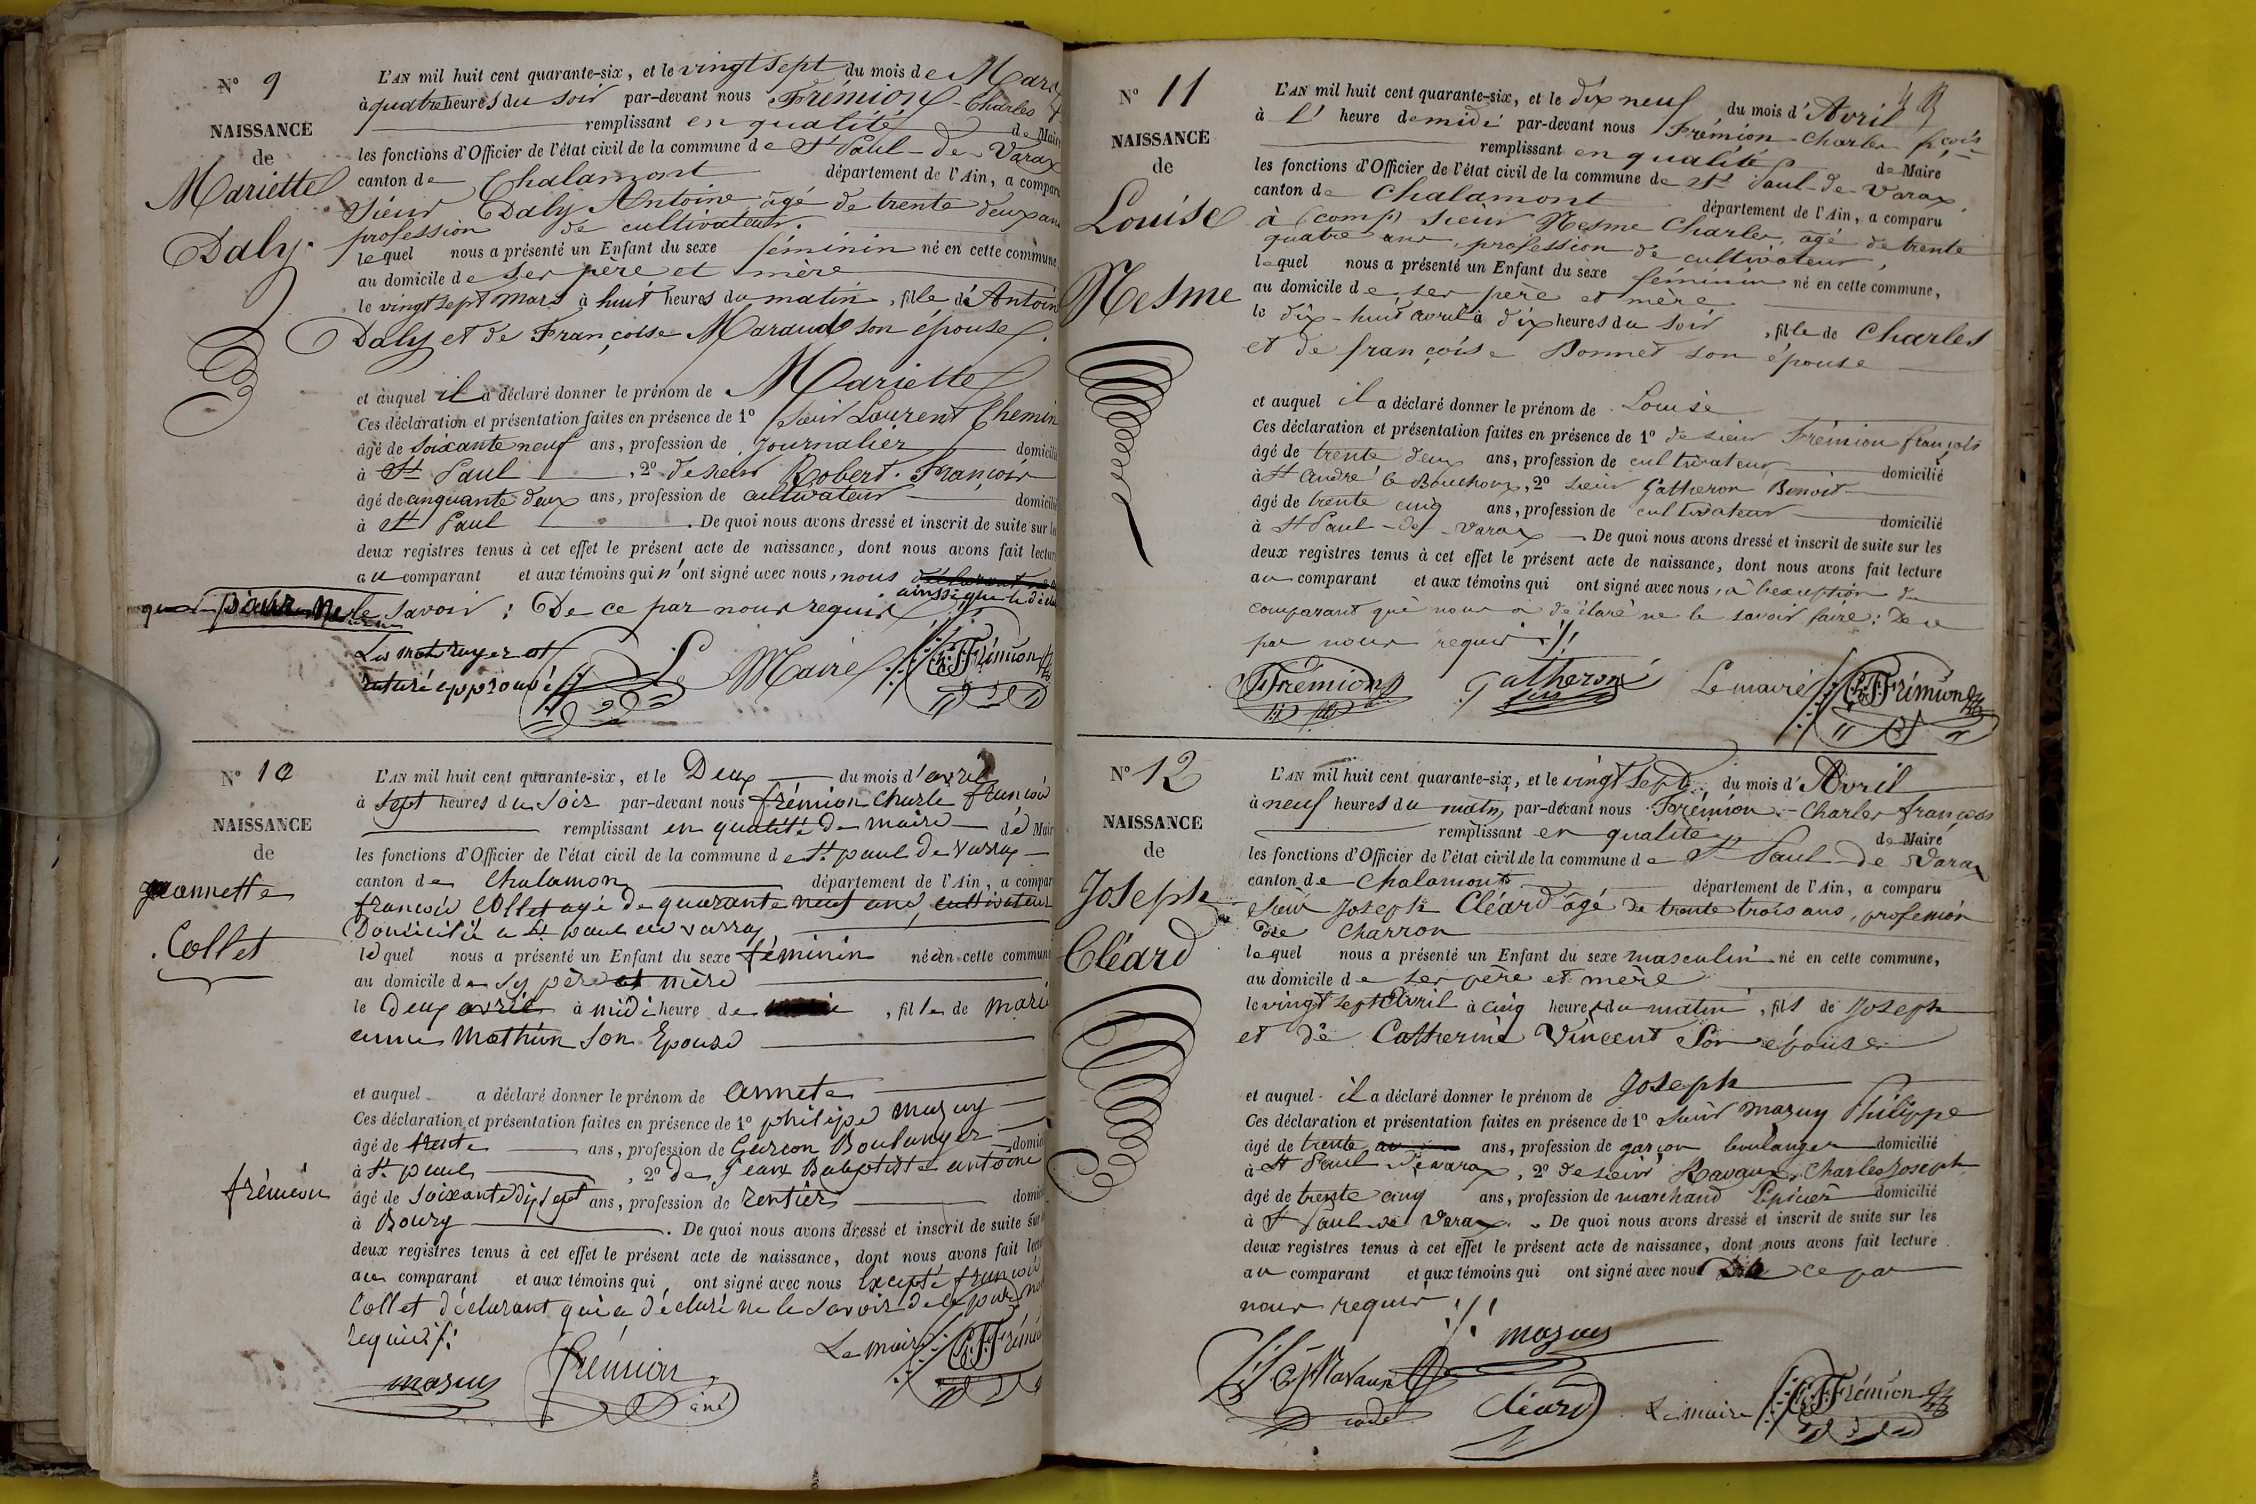 N° 9
NAISSANCE
de
Mariette
Daly.
L'AN mil huit cent quarante-six, et le vingt sept du mois de Mars
à quatre heures du soir par-devant nous Frémion Charles
remplissant en qualité de Maire
les fonctions d'Officier de l'état civil de la commune de St Paul-de-Varax
canton de Chalamont département de l'Ain, a comparu
Sieur Daly Antoine âgé de trente deux ans
profession de cultivateur.
lequel nous a présenté un Enfant du sexe féminin né en cette commune,
au domicile de ses père et mère
le vingt sept mars à huit heures du matin, fille de Antoine
Daly et de Françoise Maraud son épouse.
et auquel il a déclaré donner le prénom de Mariette
Ces déclaration et présentation faites en présence de 1° sieur Laurent Chemin
âgé de soixante neuf ans, profession de journalier domicilié
à St Paul, 2° de sieur Robert François
âgé de cinquante deux ans, profession de cultivateur domicilié
à St Paul. De quoi nous avons dressé et inscrit de suite sur les
deux registres tenus à cet effet le présent acte de naissance, dont nous avons fait lecture
au comparant et aux témoins qui n'ont signé avec nous, nous
ainsi que le
savoir : De ce par nous requis
Les mots rayer et
raturé approuvé
Le Maire C.F. Frémion
N° 10
NAISSANCE
de
jeannette
Collet
frémion
L'AN mil huit cent quarante-six, et le Deux du mois d'avril
à sept heures du soir par-devant nous frémion Charle françois
remplissant en qualité de maire de Maire
les fonctions d'Officier de l'état civil de la commune de St paul de varax
canton de Chalamon département de l'Ain, a comparu
françois Collet agé de quarante neuf ans, cultivateur
Domicilié a St paul de varax
lequel nous a présenté un Enfant du sexe féminin né en cette commune
au domicile de sy père et mère
le Deux avril à midi heure de, fille de marie
anne Mathien son Epouse
et auquel a déclaré donner le prénom de annete
Ces déclaration et présentation faites en présence de 1° philipe mazuy
âgé de trente ans, profession de Garcon Boulanger domicilié
à St paul, 2° de Jean Babptiste antoine
âgé de soixante dix sept ans, profession de rentier domicilié
à Bourg. De quoi nous avons dressé et inscrit de suite sur
deux registres tenus à cet effet le présent acte de naissance, dont nous avons fait lecture
au comparant et aux témoins qui ont signé avec nous Excepté françois
Collet déclarant qui a déclaré ne le savoir de ce par nous
requis
mazuy frémion ainé Le maire C.F. Frémion
N° 11
NAISSANCE
de
Louise
Nesme
L'AN mil huit cent quarante-six, et le dix neuf du mois d'Avril
à l' heure de midi par-devant nous Frémion Charles fçois
remplissant en qualité de Maire
les fonctions d'Officier de l'état civil de la commune de St Paul-de-Varax,
canton de Chalamont département de l'Ain, a comparu
à (comp) sieur Nesme Charles, âgé de trente
quatre ans, profession de cultivateur,
lequel nous a présenté un Enfant du sexe féminin né en cette commune,
au domicile de ses père et mère
le dix-huit avril à dix heures du soir, fille de Charles
et de françoise Bonnet son épouse
et auquel il a déclaré donner le prénom de Louise
Ces déclaration et présentation faites en présence de 1° de sieur Frémion françois
âgé de trente deux ans, profession de cultivateur domicilié
à St André le Bouchoux, 2° sieur Gatheron Benoit
âgé de trente cinq ans, profession de cultivateur domicilié
à St Paul-de-Varax. De quoi nous avons dressé et inscrit de suite sur les
deux registres tenus à cet effet le présent acte de naissance, dont nous avons fait lecture
au comparant et aux témoins qui ont signé avec nous, à l'exception du
comparant qui nous a déclaré ne le savoir faire: De ce
par nous requis
F Frémion Gatheron Le maire C.F. Frémion
N° 12
NAISSANCE
de
Joseph
Cléard
L'AN mil huit cent quarante-six, et le vingt sept du mois d'Avril
à neuf heures du matin, par-devant nous Frémion-Charles françois
remplissant en qualité de Maire
les fonctions d'Officier de l'état civil de la commune de St Paul-de-Varax
canton de Chalamont département de l'Ain, a comparu
sieur Joseph Cléard âgé de trente trois ans, profession
de Charron
lequel nous a présenté un Enfant du sexe masculin né en cette commune,
au domicile de ses père et mère
le vingt sept Avril à cinq heures du matin, fils de Joseph
et de Catherine Vincent son épouse
et auquel il a déclaré donner le prénom de Joseph
Ces déclaration et présentation faites en présence de 1° sieur mazuy Philippe
âgé de trente ans, profession de garçon boulanger domicilié
à St Paul de varax, 2° de sieur Ravaux, Charles Joseph
âgé de trente cinq ans, profession de marchand Epicier domicilié
à St Paul de Varax. De quoi nous avons dressé et inscrit de suite sur les
deux registres tenus à cet effet le présent acte de naissance, dont nous avons fait lecture
au comparant et aux témoins qui ont signé avec nous De ce par
nous requis
mazuy
C J Ravaux Cléard Le maire C.F. Frémion